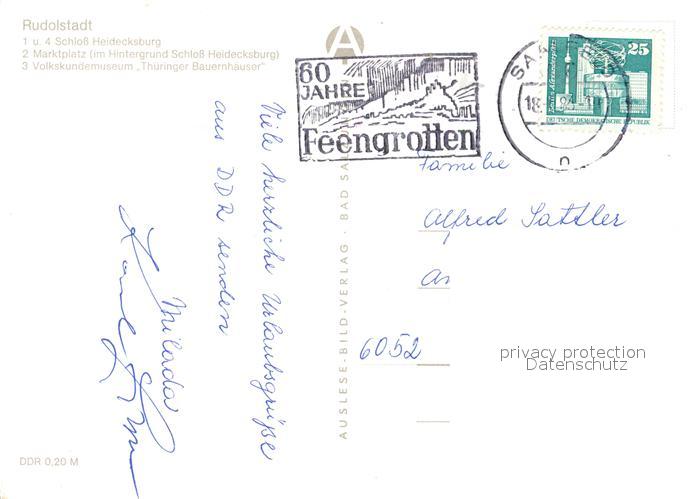 Rudolstadt
1 u. 4 Schloß Heidecksburg
2 Marktplatz (im Hintergrund Schloß Heidecksburg)
3 Volkskundemuseum „Thüringer Bauernhäuser"
A
60
JAHRE
Feengrotten
SAALFELD
18
n
25
Berlin, Alexanderplatz
DEUTSCHE DEMOKRATISCHE REPUBLIK
Viele herzliche Urlaubsgrüße
aus DDR senden
Milada
AUSLESE-BILD-VERLAG · BAD SAL
Familie
Alfred Sattler
6052
privacy protection
Datenschutz
DDR 0,20 M